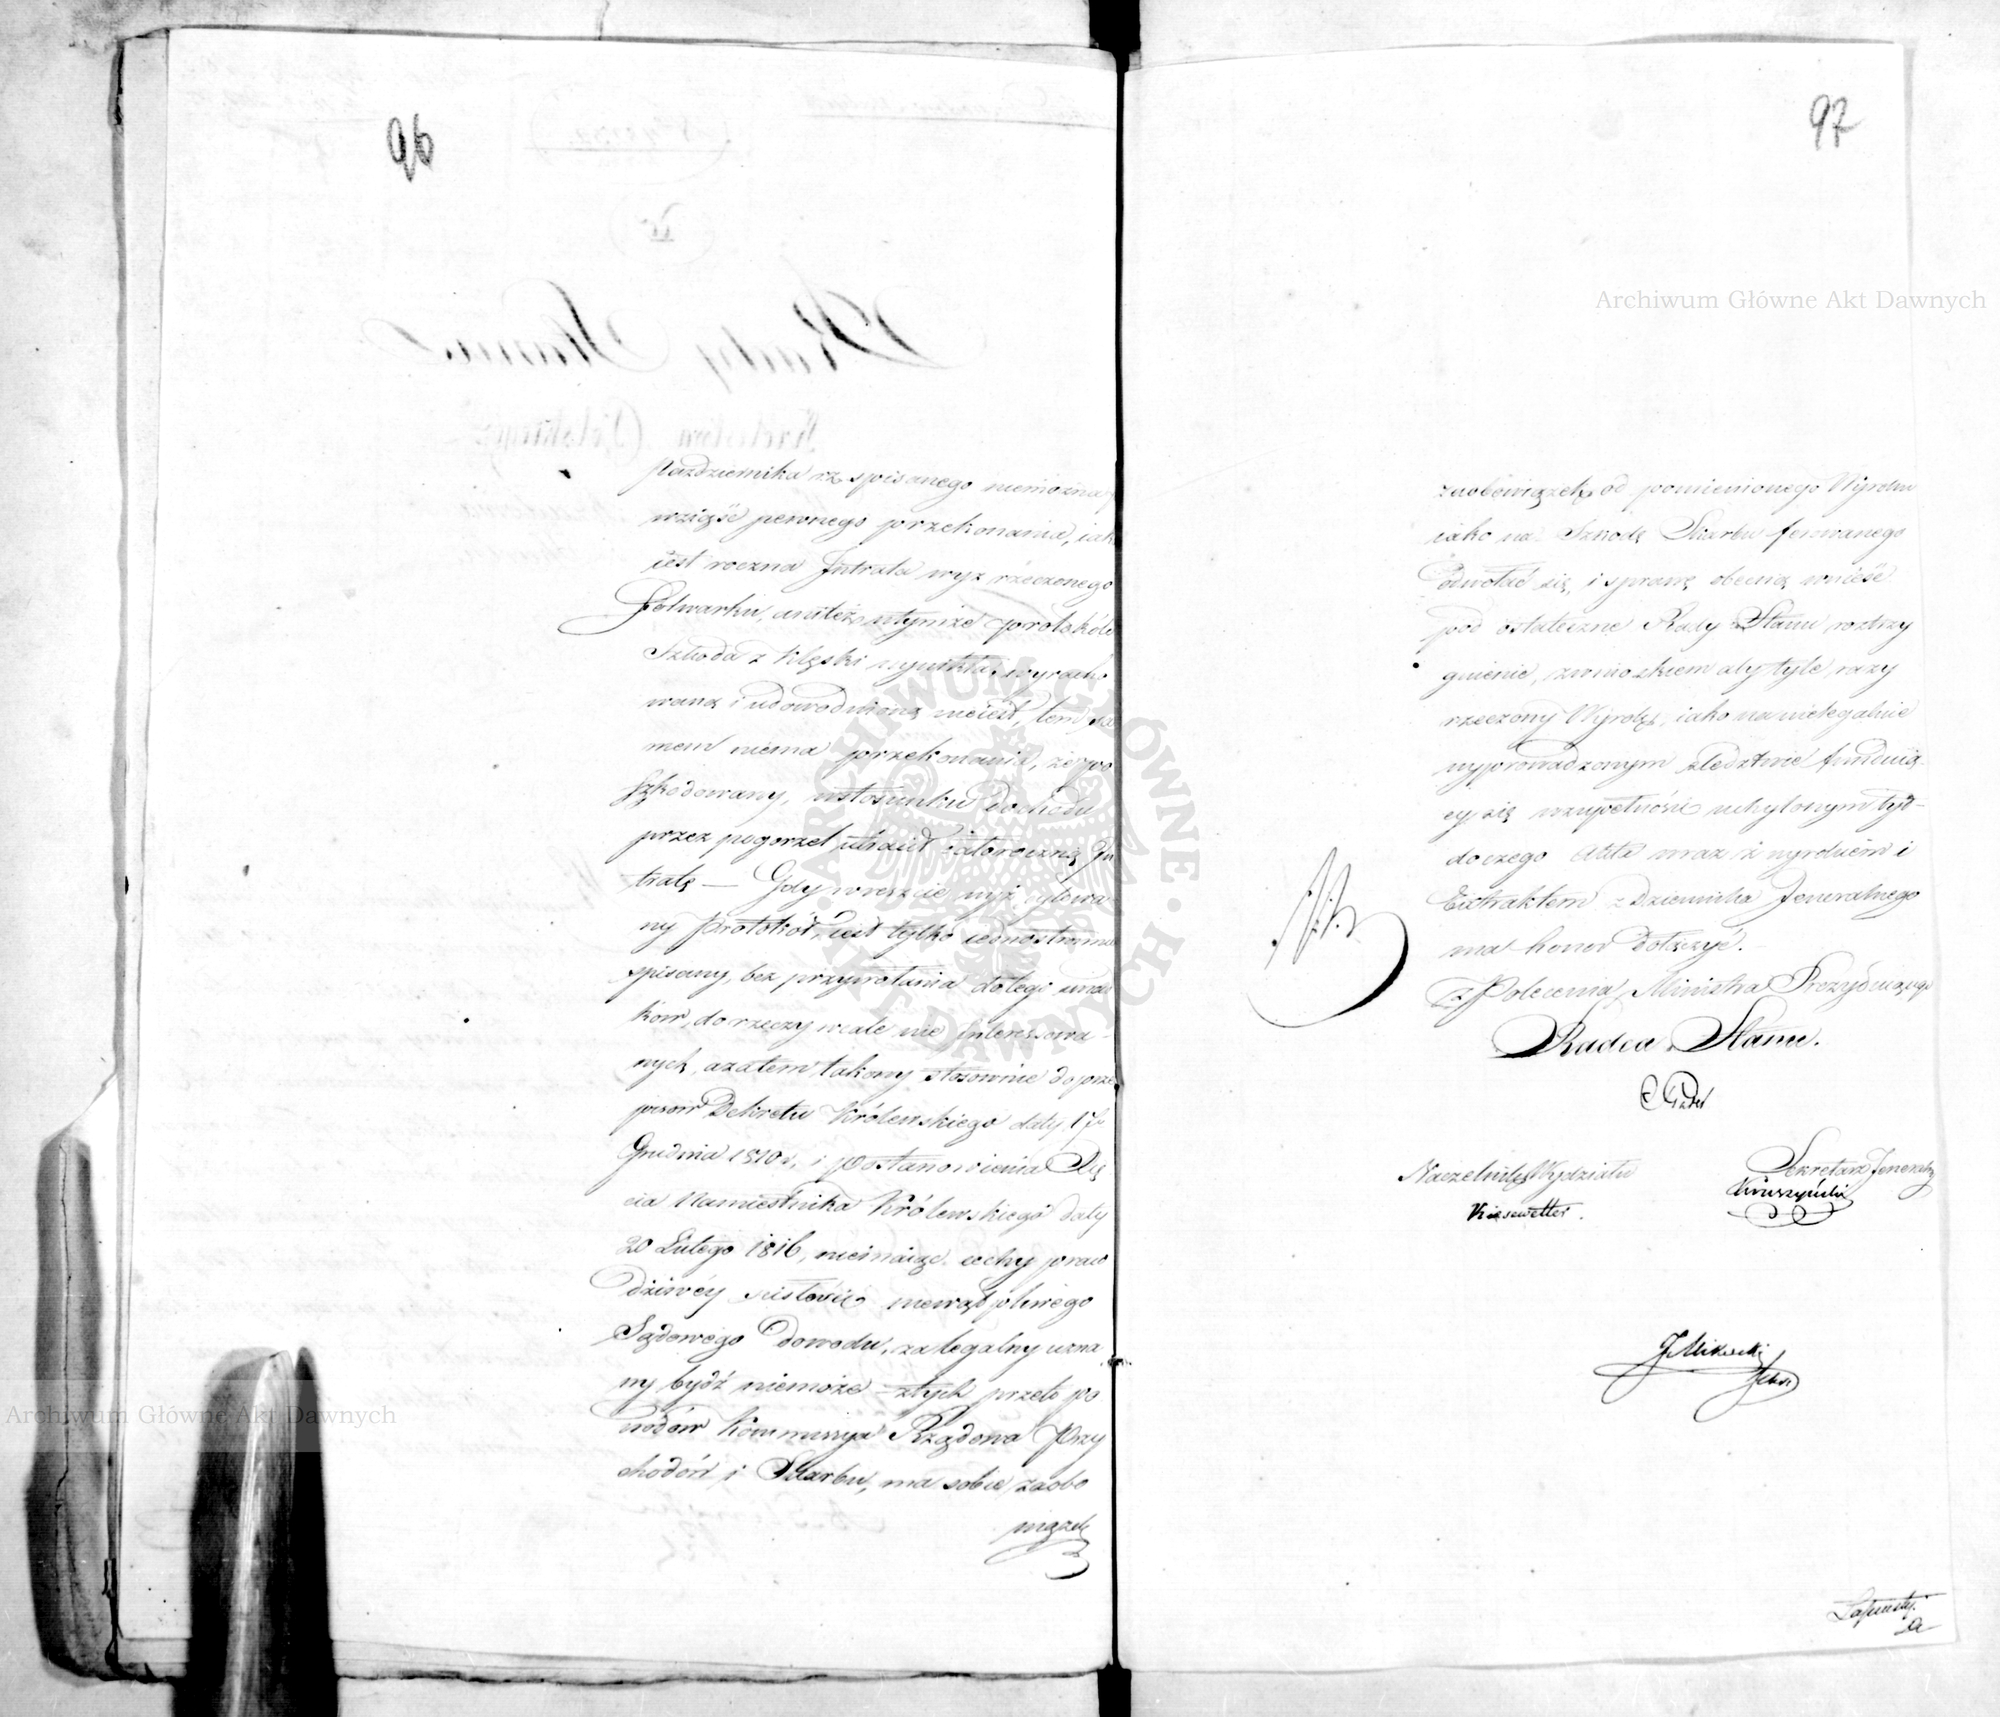 96
października rz. spisanego niemożna
wziąść pewnego przekonania, iak
iest roczna Intrata wyz rzeczonego
Folwarku, anitéż wtymże protokóle
Szkoda z klęski wynikła, wyracho
waną i udowodnioną nieiest, tem sa
mem niema przekonania, że po
szkodowany, wstosunku Dochodu
przez pogorzel utracił całoroczną In
tratę — Gdy wreszcie wyż cytowa
ny Protokół, iest tylko iednostronnie
spisany, bez przywołania dotego świad
ków, do rzeczy wcale nie interessowa-
nych, azatem takowy stosownie do prze
pisów Dekretu Królewskiego daty 17o
Grudnia 1810 r. i Postanowienia Xię
cia Namiestnika Królewskiego daty
20 Lutego 1816, nieimaiąc cechy praw
dziwéy istości niewątpliwego
Sądowego dowodu, za legalny uzna
ny bydź niemoże — ztych przeto po
wodów Kommissya Rządowa Przy
chodów i Skarbu, ma sobie zaobo
wiązek
97
zaobowiązek od pomienionego Wyroku
iako na Szkodę Skarbu ferowanego
odwołać się, i sprawę obecną wnieść
pod ostateczne Rady Stanu roztrzy
gnienie, zwnioskiem aby tyle razy
rzeczony Wyrok, iako na nielegalnie
wyprowadzonym śledztwie funduią
cy się wzupełności uchylonym był —
do czego Akta wraz z wyrokiem i
Extraktem z Dziennika Jeneralnego
ma honor dołączyć.
z Polecenia Ministra Prezyduiącego
Radca Stanu.
Naczelnik Wydziału
Sekretarz Jeneralny
Kruszyński
Kiesewetter.
Archiwum Główne Akt Dawnych
Archiwum Główne Akt Dawnych
ARCHIWUM GŁÓWNE AKT DAWNYCH